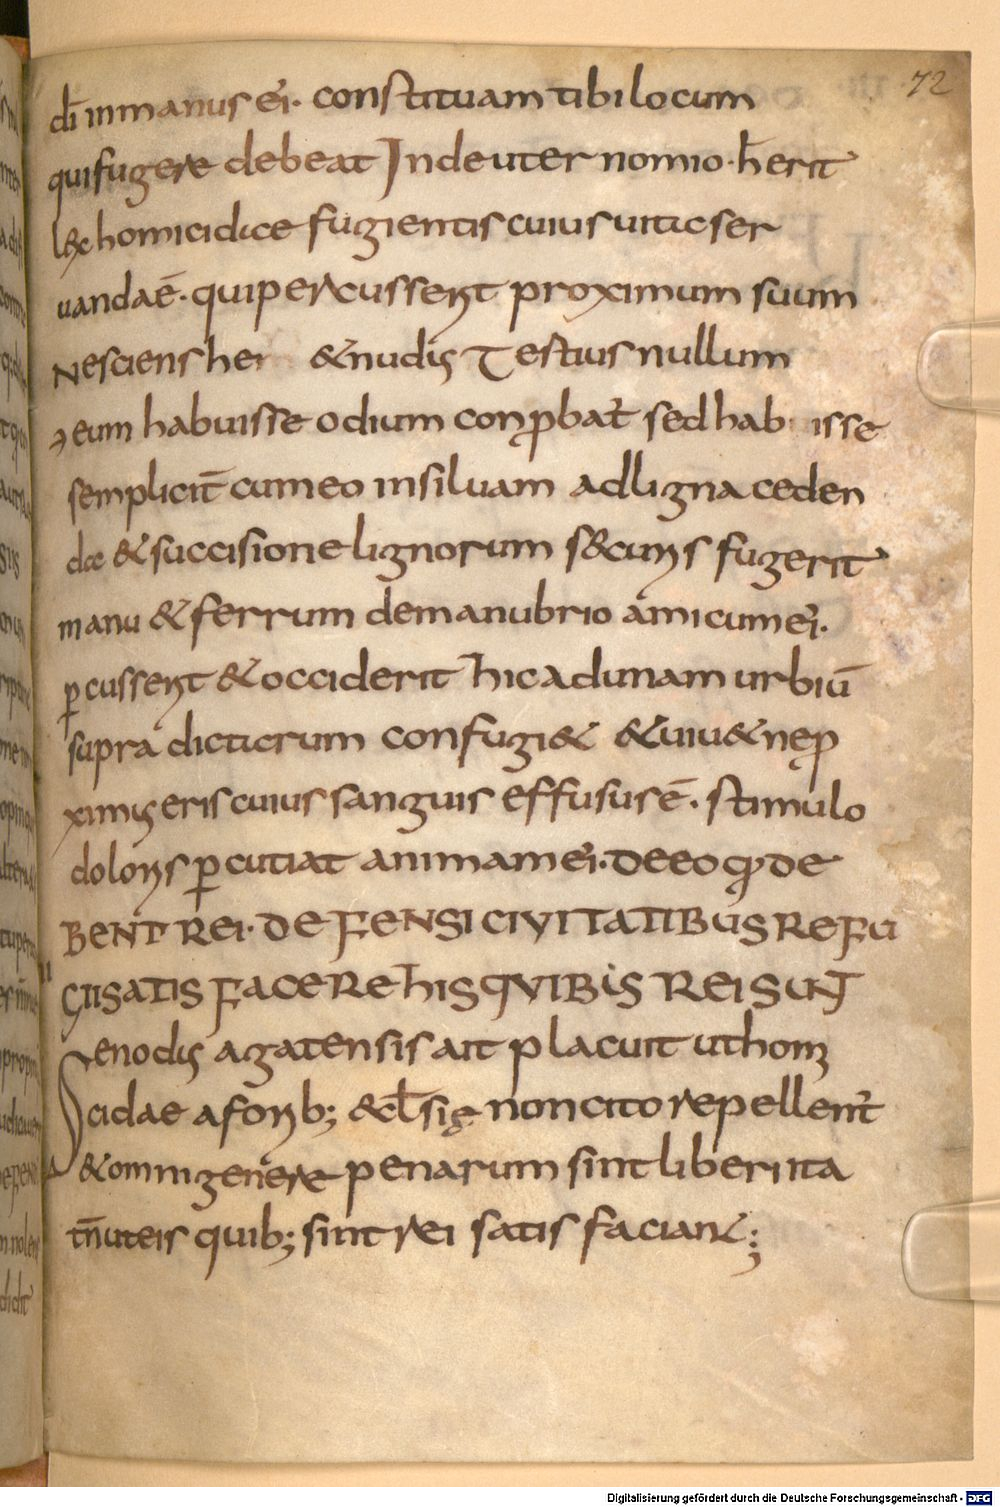 72
dī inmanus ei· constituam tibi locum
quifugere debeat Inde uter nomio· h̄erit
lex homicidae fugientis cuius uita ser
uanda ē· qui percusserit proximum suum
Nesciens her & nudius Tertius nullum
eum habuisse odium conprobat̄ sed hab isse
sempliciī cum eo in siluam ad ligna ceden
da & succisione lignorum securis fugerit
manu & ferrum de manubrio amicum ei·
ꝑcusserit & occiderit hic ad unam urbiū
supra dictarum confugi& & uiu& ne ꝓ
ximus eris cuius sanguis effusus ē· stimulo
doloris ꝑcutiat animam ei· DE EO Q DE
BENT REI· DEFENSI CIVITATIBUS REFU
GII SATIS FACERE HIS QVIBIS REI SUNT
Senodis agatensis ait placuit ut homi
cidae a forib; & clsię non cito repellent̄
& omni genere penarum sint liberi ita
tn̄ ut eis quib; sint rei satis faciant;
Digitalisierung gefördert durch die Deutsche Forschungsgemeinschaft - DFG